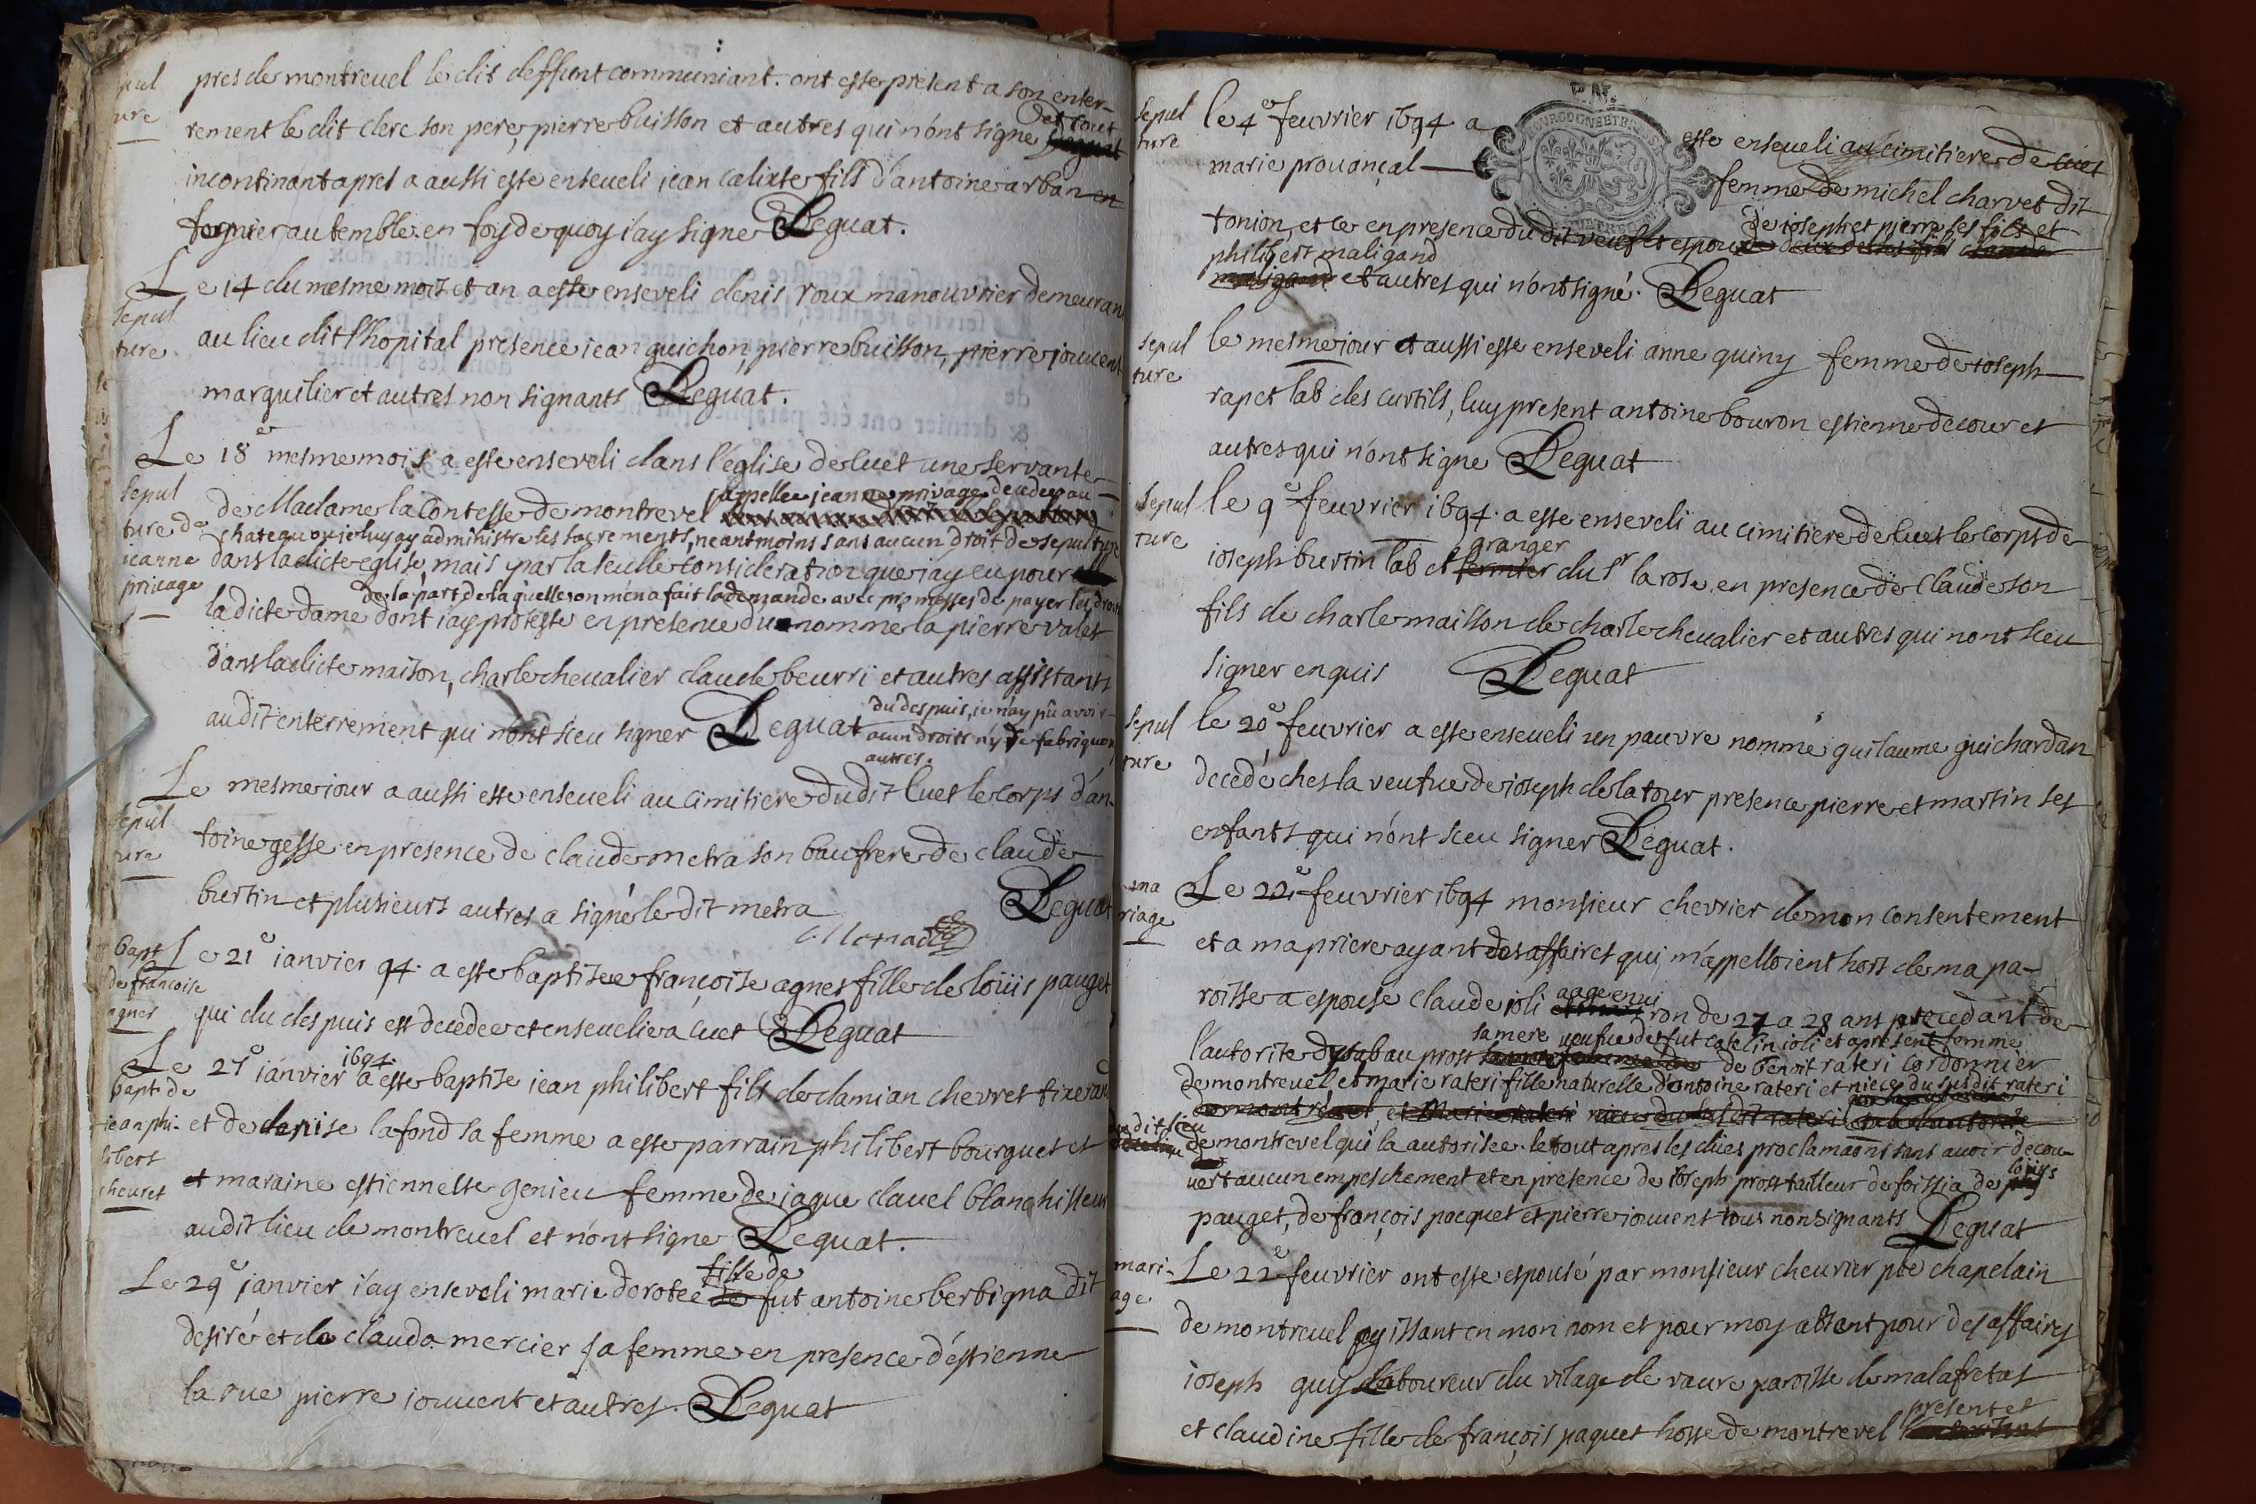 sepul
ture
pres de montrevel le dit deffunt communiant. ont esté present a son enter-
rement le dit clerc son pere, pierre buisson et autres qui n'ont signe
et tout
incontinant apres a aussi esté enseveli jean calixte fils d'antoine arban en
fermier au temble. en foy de quoy i'ay signe Deguat.
sepul
ture
Le 14 du mesme mois et an a esté enseveli denis roux manouvrier demeurant
au lieu dit l'hopital presence jean guichon, pierre buisson, pierre jouvent
marguilier et autres non signants Deguat.
sepul
ture de
jeanne
privage
Le 18e mesme mois a esté enseveli dans l'église de cuet une servante
appellee jeanne privage decedee au
de Madame la Contesse de montrevel
chateau ou je luy ay administre les sacrements, neantmoins sans aucun droit de sepulture
dans la dicte eglise, mais par la seulle consideration que j'ay eu pour
de la part de laquelle on m'en a fait la demande avec promesses de payer les droits
la dicte dame dont i'ay protesté en presence du nomme la pierre valet
dans la dicte maison, charle chevalier claude beurri et autres assistants
au dit enterrement qui n'ont sceu signer Deguat
du despuis, je n'ay pû avoir
aucun droits ny de fabrique ny
autres.
sepul
ture
Le mesme jour a aussi esté enseveli au cimitiere du dit Cuet le corps d'an-
toine gesse en presence de claude metra son baufrere de claude
burtin et plusieurs autres a signé le dit metra
Deguat
bapt
de francoise
agnes
Le 21e janvier 94. a esté baptisee françoise agnes fille de loüis pauget
qui du despuis est decedee et ensevelie a cuet Deguat
bapt de
jean phi-
libert
chevret
1694.
Le 27e janvier a esté baptise jean philibert fils de damian chevret tixerand
et de denise lafond sa femme a esté parrain philibert bourguet et
et maraine estiennette genieu femme de jaque clavel blanchisseur
au dit lieu de montrevel et n'ont signe Deguat.
fille de
Le 29e janvier i'ay enseveli marie dorotee de fut antoine berbigna dit
desiré et de clauda mercier sa femme en presence d'estienne
la rue pierre jouvent et autres. Deguat
sepul
ture
le 4e feuvrier 1694 a esté enseveli au cimitiere de cuet
marie prouançal femme de michel charvet dit
de joseph et pierre ses fils et
tonion, et ce en presence du dit veuf et espoux
philibert maligand
maligand et autres qui n'ont signé. Deguat
sepul
ture
le mesme jour et aussi esté enseveli anne quiny femme de joseph
rapet lab des curtils, luy present antoine bouron estienne decour et
autres qui n'ont signe Deguat
sepul
ture
le 9e feuvrier 1694. a esté enseveli au cimitiere de cuet le corps de
granger
joseph burtin lab et fermier du sr la rose en presence de Claude son
fils de charle maisson de charle chevalier et autres qui n'ont sceu
signer enquis Deguat
sepul
ture
le 20e feuvrier a esté enseveli un pauvre nommé guilaume guichardan
decedé ches la veufve de joseph de la tour presence pierre et martin ses
enfants qui n'ont sceu signer Deguat.
ma
riage
Le 22e feuvrier 1694 monsieur chevrier de mon consentement
et a ma priere ayant des affaires qui m'appelloient hors de ma pa-
roisse a espousé claude joli
aage envi
ron de 27 a 28 ans procedant de
sa mere veufve de fut catelin joli et apresent femme
l'autorite d'ysabau prost de benoit rateri cordonnier
de montrevel et marie rateri fille naturelle d'antoine rateri et niece du susdit rateri
de montrevel, et Marie rateri niece du susdit rateri
du dit lieu
de montrevel qui la autorisee. le tout apres les dües proclamaons sans avoir decou-
vert aucun empeschement et en presence de joseph prost tailleur de foissia de
louis
pauget, de françois pacquet et pierre jouvent tous non signants Deguat
mari-
age
Le 22e feuvrier ont esté espousé par monsieur chevrier pbre chapelain
de montrevel agissant en mon nom et pour moy absent pour des affaires
joseph guy laboureur du vilage de vaure paroisse de malafretas
present et
et claudine fille de françois paquet hoste de montrevel